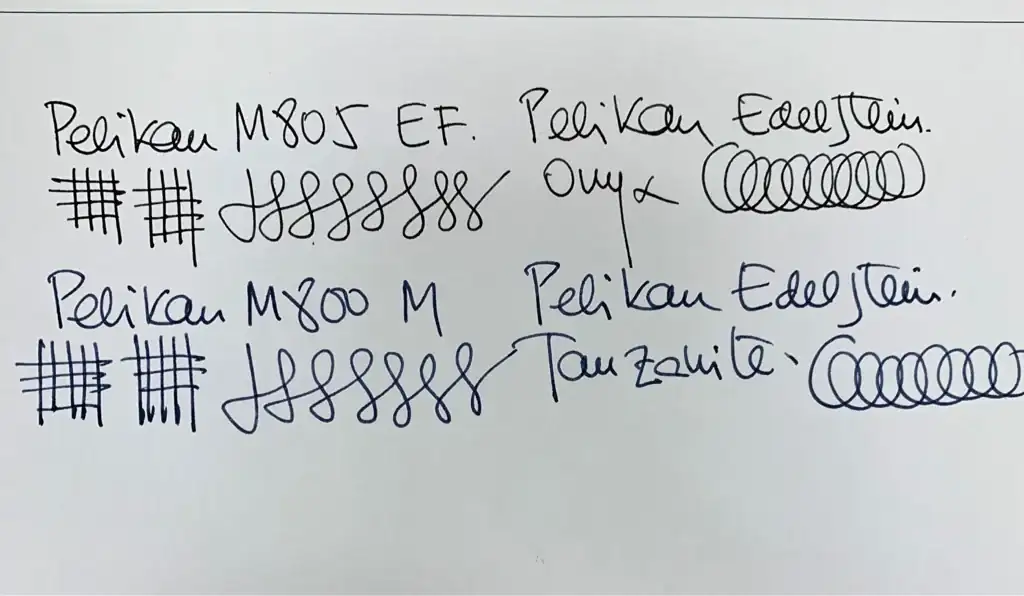 Pelikan M805 EF. Pelikan Edelstein.
Onyx
Pelikan M800 M Pelikan Edelstein.
Tanzanite.